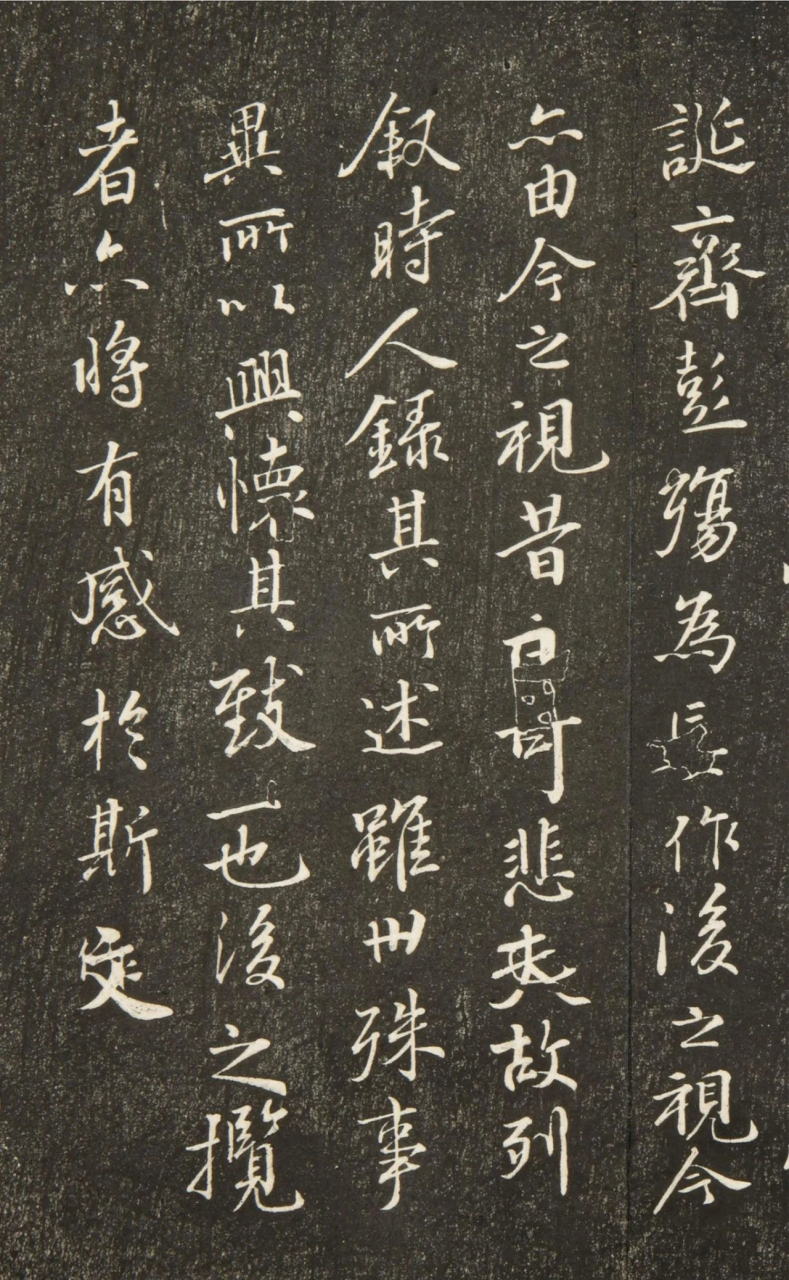 誕齊彭殤為妄作後之視今
亦由今之視昔可悲夫故列
叙時人錄其所述雖世殊事
異所以興懷其致一也後之攬
者亦將有感於斯文